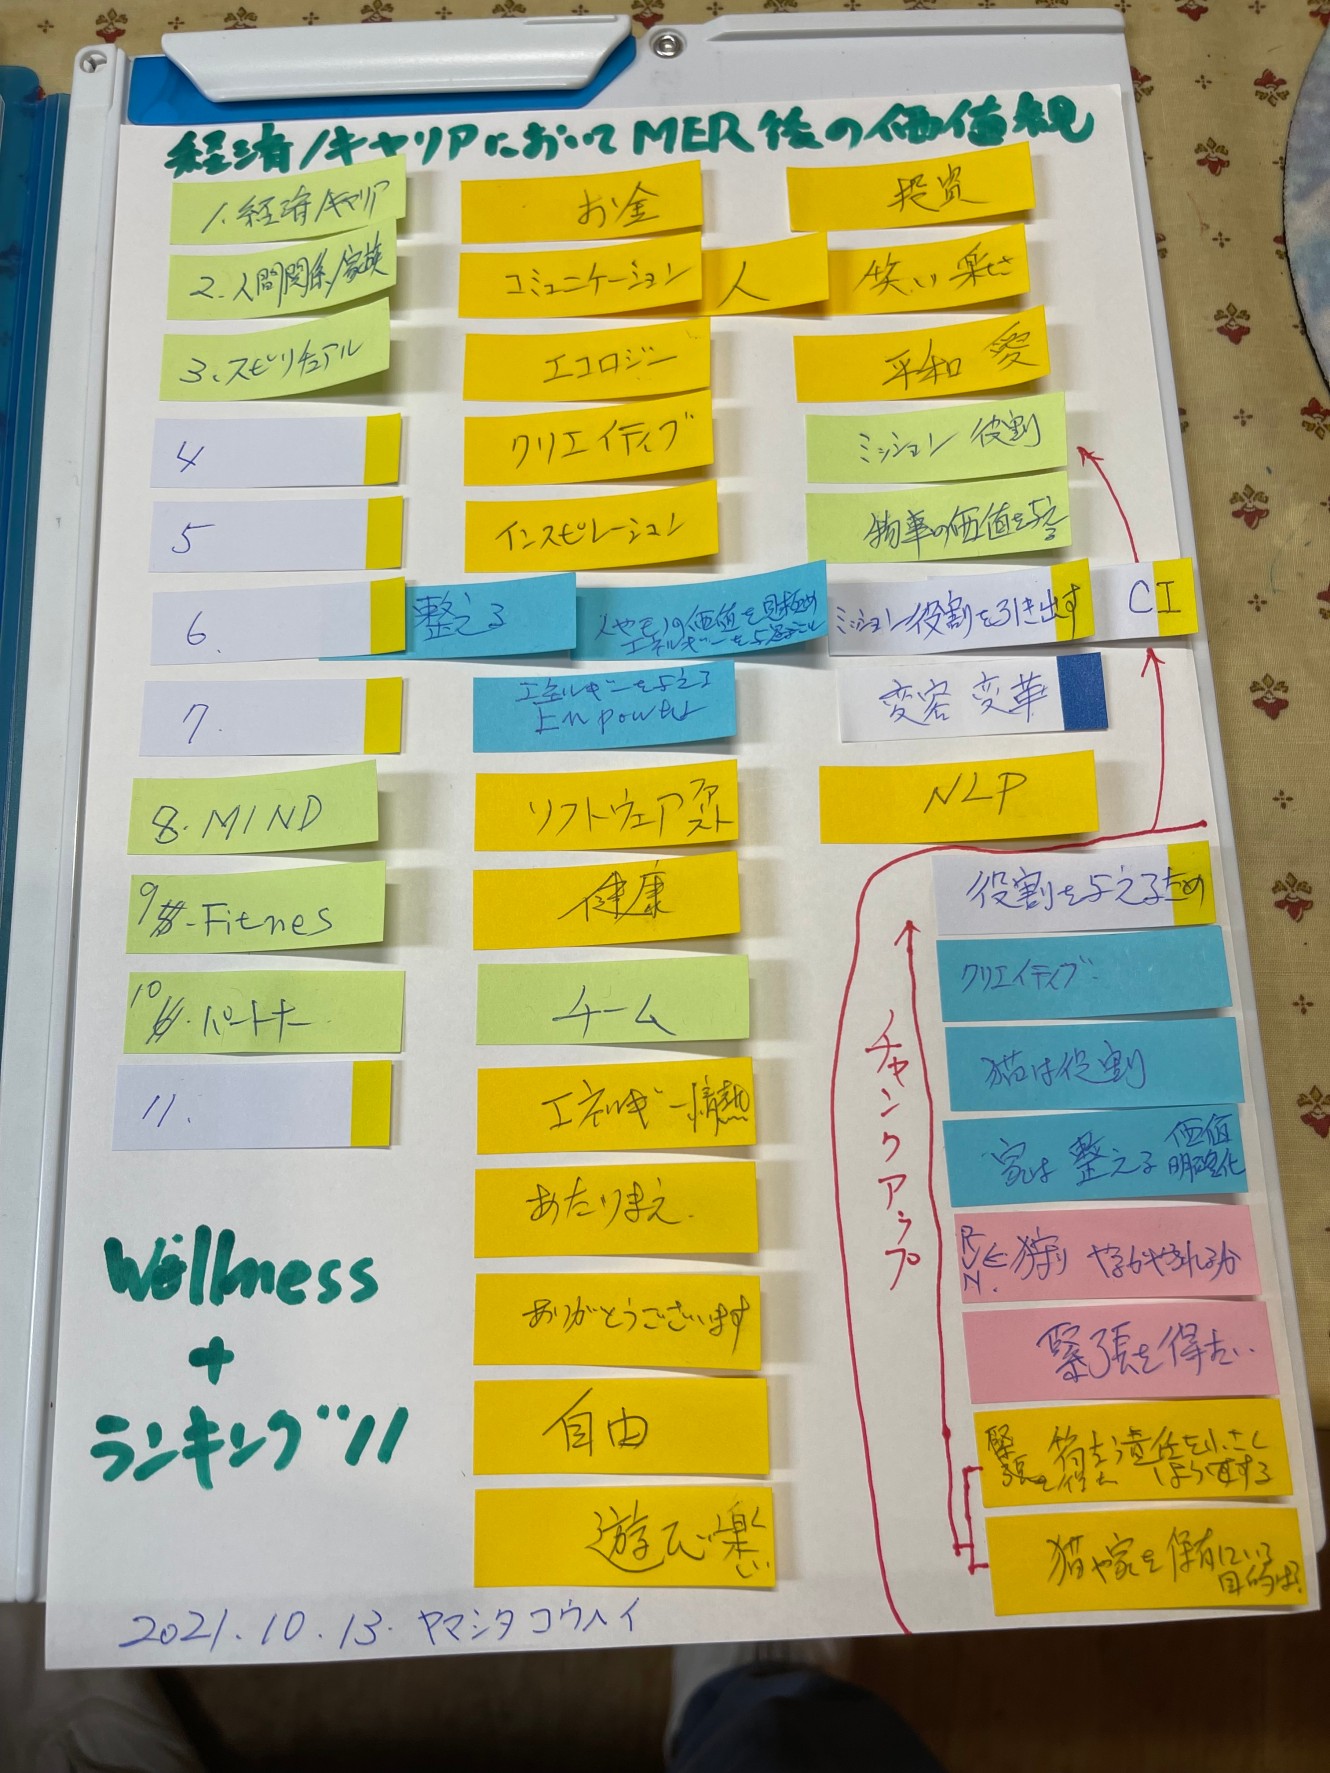 経済/キャリアにおいてMER後の価値観
1.経済/キャリア
お金
投資
2.人間関係/家族
コミュニケーション
人
笑い 楽しさ
3.スピリチュアル
エコロジー
平和 愛
4
クリエイティブ
ミッション 役割
5
インスピレーション
物事の価値を与える
6.
整える
人やモノの価値を見極め
エネルギーを与えること
ミッション役割を引き出す
CI
7.
エネルギーを与える
Enpower
変容 変革
8.MIND
ソフトウェアファスト
NLP
9.Fitnes
健康
10.パートナー
チーム
11.
エネルギー情熱
あたりまえ.
ありがとうございます
自由
遊び心 楽しい
役割を与えるため
クリエイティブ
猫は役割
家は 整える 価値
明確化
狩り やるかやられるか
緊張を得たい.
猫や家を保有している
目的は?
チャンクアップ
Wellness
+
ランキング11
2021.10.13.ヤマシタコウヘイ